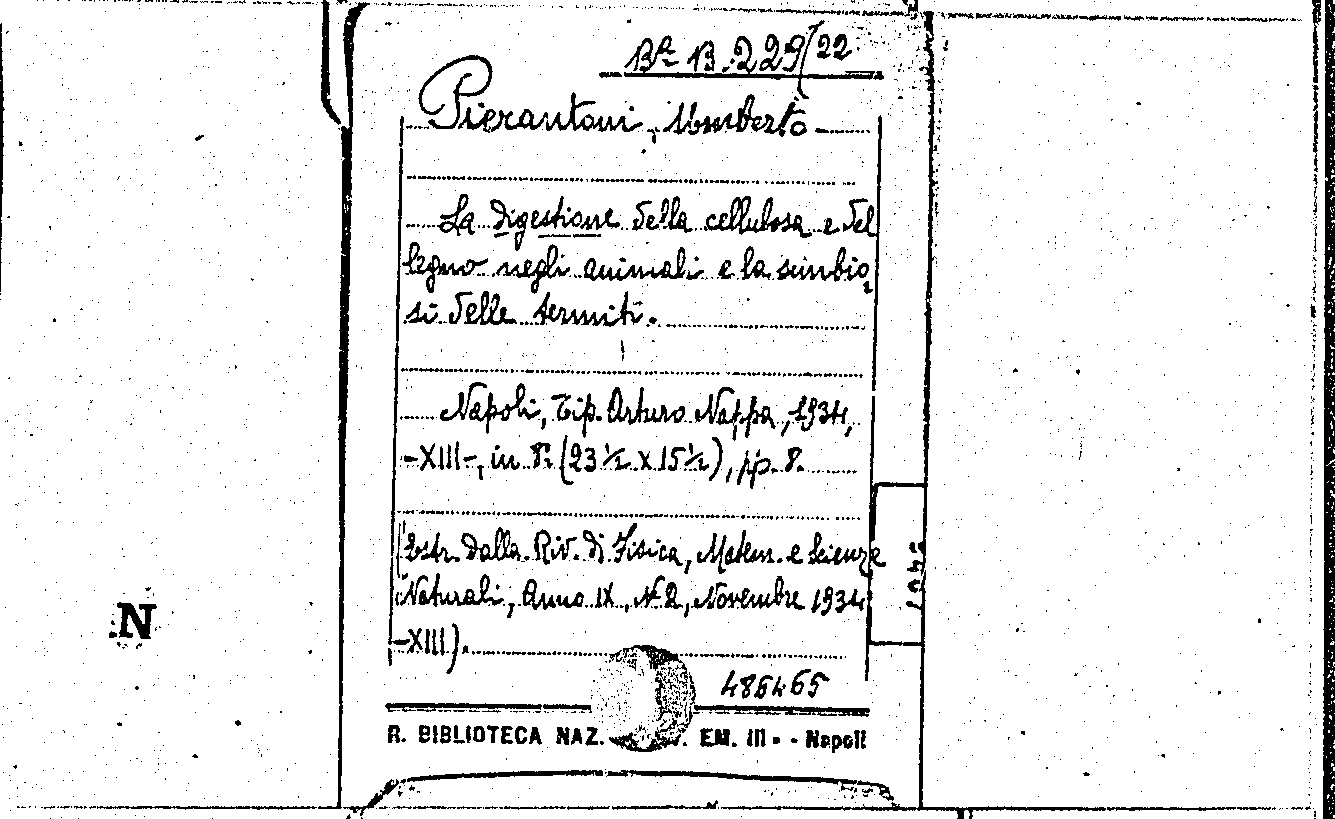 Bª B. 229/22
Pierantoni, Umberto
La digestione della cellulosa e del
legno negli animali e la simbio-
si delle termiti.
Napoli, Tip. Arturo Nappa, 1934,
-XIII-, in 8º (23 ½ x 15 ½), pp. 8.
(Estr. dalla Riv. di Fisica, Matem. e Scienze
Naturali, Anno IX, Nº 2, Novembre 1934
-XIII).
486465
R. BIBLIOTECA NAZ. EM. III - - Napoli
N